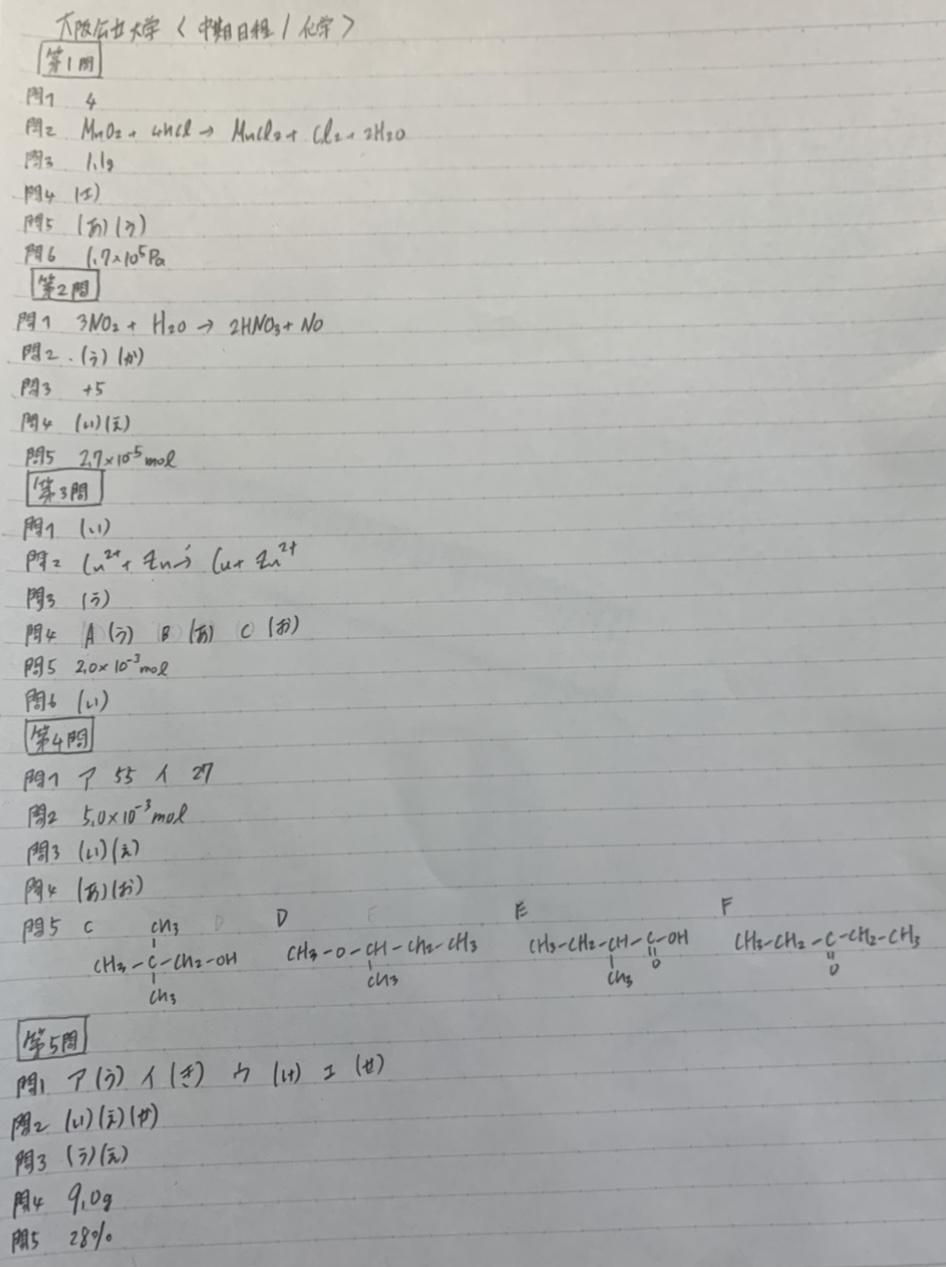 大阪公立大学〈中期日程/化学〉
第1問
問1 4
問2 MnO2 + 4HCl → MnCl2 + Cl2 + 2H2O
問3 1.1g
問4 (え)
問5 (あ)(う)
問6 1.7×10^5 Pa
第2問
問1 3NO2 + H2O → 2HNO3 + NO
問2 (う)(か)
問3 +5
問4 (い)(え)
問5 2.7×10^-5 mol
第3問
問1 (い)
問2 Cu^2+ + Zn → Cu + Zn^2+
問3 (う)
問4 A (う) B (あ) C (お)
問5 2.0×10^-3 mol
問6 (い)
第4問
問1 ア 55 イ 27
問2 5.0×10^-3 mol
問3 (い)(え)
問4 (あ)(お)
問5 C D E F
CH3
CH3-C-CH2-OH CH3-O-CH-CH2-CH3 CH3-CH2-CH-C-OH CH3-CH2-C-CH2-CH3
CH3 CH3 CH3 O O
第5問
問1 ア (う) イ (き) ウ (け) エ (せ)
問2 (い)(え)(か)
問3 (う)(え)
問4 9.0g
問5 28%